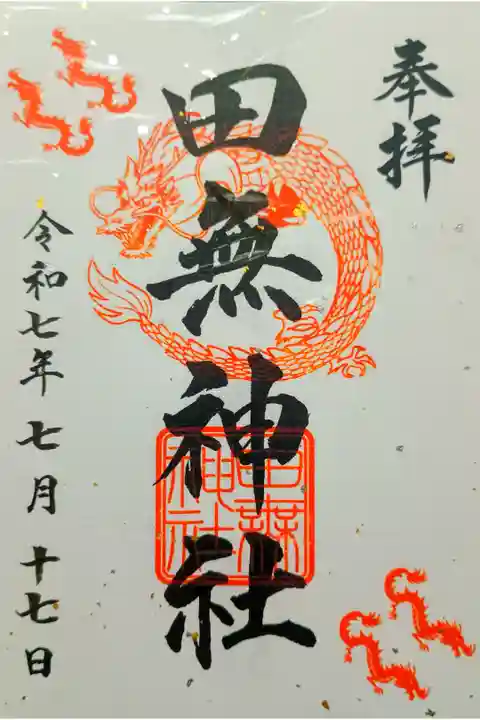 奉拝
田無神社
田無
神社
令和七年七月十七日